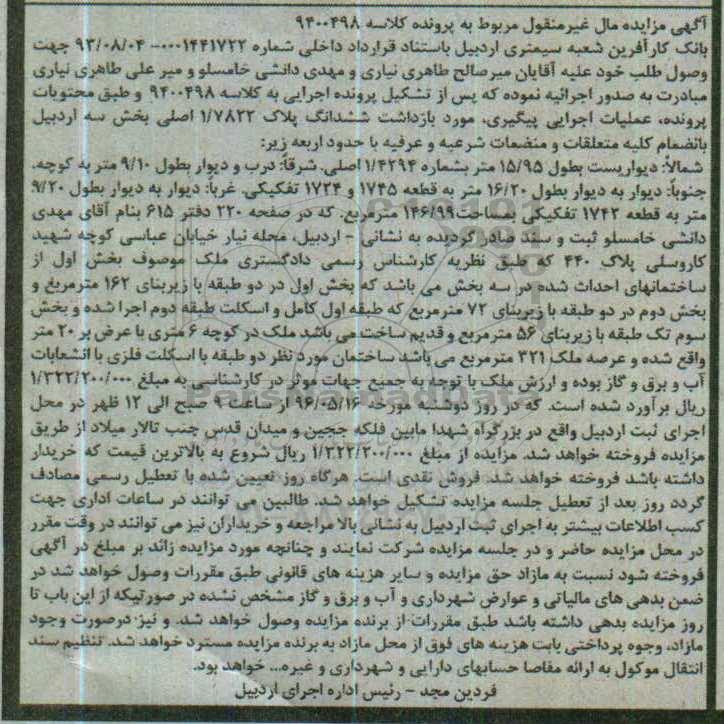 آگهی مزایده مال غیرمنقول مربوط به پرونده کلاسه ۹۴۰۰۴۹۸
بانک کارآفرین شعبه سیمتری اردبیل باستناد قرارداد داخلی شماره ۰۰۰۱۴۴۱۷۲۲-۹۳/۰۸/۰۴ جهت
وصول طلب خود علیه آقایان میرصالح طاهری نیاری و مهدی دانشی خامسلو و میر علی طاهری نیاری
مبادرت به صدور اجرائیه نموده که پس از تشکیل پرونده اجرایی به کلاسه ۹۴۰۰۴۹۸ و طبق محتویات
پرونده، عملیات اجرایی پیگیری، مورد بازداشت ششدانگ پلاک ۱/۷۸۲۲ اصلی بخش سه اردبیل
بانضمام کلیه متعلقات و منضمات شرعیه و عرفیه با حدود اربعه زیر:
شمالاً: دیواریست بطول ۱۵/۹۵ متر بشماره ۱/۴۲۹۴ اصلی. شرقاً: درب و دیوار بطول ۹/۱۰ متر به کوچه.
جنوباً: دیوار به دیوار بطول ۱۶/۲۰ متر به قطعه ۱۷۴۵ و ۱۷۲۴ تفکیکی. غرباً: دیوار به دیوار بطول ۹/۲۰
متر به قطعه ۱۷۴۲ تفکیکی بمساحت ۱۴۶/۹۹ مترمربع. که در صفحه ۲۲۰ دفتر ۶۱۵ بنام آقای مهدی
دانشی خامسلو ثبت و سند صادر گردیده به نشانی - اردبیل، محله نیار خیابان عباسی کوچه شهید
کاروسلی پلاک ۴۴۰ که طبق نظریه کارشناس رسمی دادگستری ملک موصوف بخش اول از
ساختمانهای احداث شده در سه بخش می باشد که بخش اول در دو طبقه با زیربنای ۱۶۲ مترمربع و
بخش دوم در دو طبقه با زیربنای ۷۲ مترمربع که طبقه اول کامل و اسکلت طبقه دوم اجرا شده و بخش
سوم تک طبقه با زیربنای ۵۶ مترمربع و قدیم ساخت می باشد ملک در کوچه ۶ متری با عرض بر ۲۰ متر
واقع شده و عرصه ملک ۳۲۱ مترمربع می باشد ساختمان مورد نظر دو طبقه با اسکلت فلزی با انشعابات
آب و برق و گاز بوده و ارزش ملک با توجه به جمیع جهات موثر در کارشناسی به مبلغ ۱/۳۲۲/۲۰۰/۰۰۰
ریال برآورد شده است. که در روز دوشنبه مورخه ۹۶/۰۵/۱۶ از ساعت ۹ صبح الی ۱۲ ظهر در محل
اجرای ثبت اردبیل واقع در بزرگراه شهدا مابین فلکه ججین و میدان قدس جنب تالار میلاد از طریق
مزایده فروخته خواهد شد. مزایده از مبلغ ۱/۳۲۲/۲۰۰/۰۰۰ ریال شروع به بالاترین قیمت که خریدار
داشته باشد فروخته خواهد شد. فروش نقدی است. هرگاه روز تعیین شده با تعطیل رسمی مصادف
گردد روز بعد از تعطیل جلسه مزایده تشکیل خواهد شد. طالبین می توانند در ساعات اداری جهت
کسب اطلاعات بیشتر به اجرای ثبت اردبیل به نشانی بالا مراجعه و خریداران نیز می توانند در وقت مقرر
در محل مزایده حاضر و در جلسه مزایده شرکت نمایند و چنانچه مورد مزایده زائد بر مبلغ در آگهی
فروخته شود نسبت به مازاد حق مزایده و سایر هزینه های قانونی طبق مقررات وصول خواهد شد در
ضمن بدهی های مالیاتی و عوارض شهرداری و آب و برق و گاز مشخص نشده در صورتیکه از این باب تا
روز مزایده بدهی داشته باشد طبق مقررات از برنده مزایده وصول خواهد شد. و نیز درصورت وجود
مازاد، وجوه پرداختی بابت هزینه های فوق از محل مازاد به برنده مزایده مسترد خواهد شد. تنظیم سند
انتقال موکول به ارائه مفاصا حسابهای دارایی و شهرداری و غیره... خواهد بود.
فردین مجد - رئیس اداره اجرای اردبیل